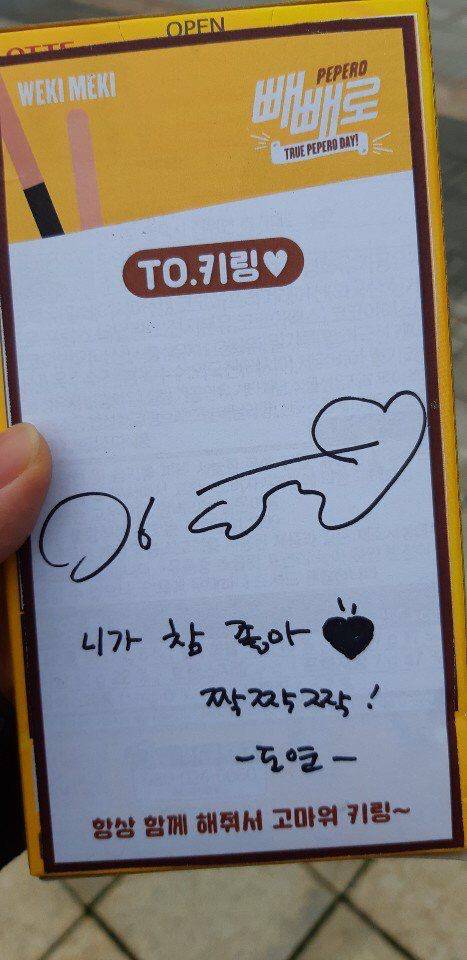 LOTTE
OPEN
WEKI MEKI
PEPERO
빼빼로
TRUE PEPERO DAY!
TO.키링♥
니가 참 좋아 ♥
짝짝짝짝!
-도연-
항상 함께 해줘서 고마워 키링~